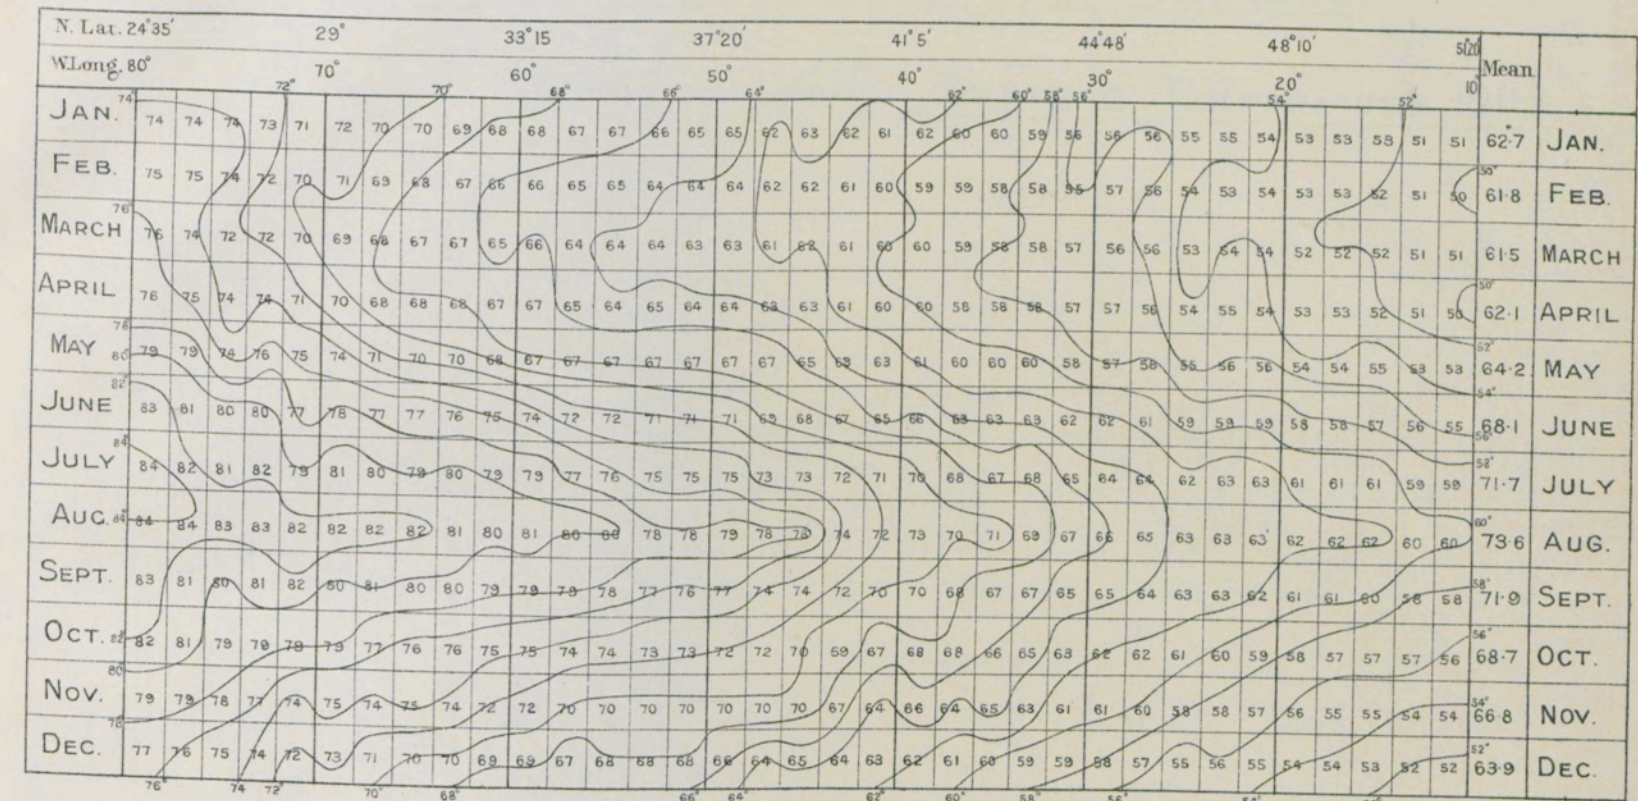 N. Lat. 24°35′ 29° 33°15′ 37°20′ 41°5′ 44°48′ 48°10′ 51°20′
W.Long. 80° 70° 60° 50° 40° 30° 20° 10° Mean
74° 72° 70° 68° 66° 64° 62° 60° 58° 56° 54° 52°
JAN. 74 74 74 73 71 72 70 70 69 68 68 67 67 66 65 65 62 63 62 61 62 60 60 59 56 56 56 55 55 54 53 53 53 51 51 62·7 JAN.
50°
FEB. 75 75 74 72 70 71 69 68 67 66 66 65 65 64 64 64 62 62 61 60 59 59 58 58 55 57 56 54 53 54 53 53 52 51 50 61·8 FEB.
76°
MARCH 76 74 72 72 70 69 68 67 67 65 66 64 64 64 63 63 61 62 61 60 60 59 58 58 57 56 56 53 54 54 52 52 52 51 51 61·5 MARCH
50°
APRIL 76 75 74 74 71 70 68 68 68 67 67 65 64 65 64 64 63 63 61 60 60 58 58 58 57 57 56 54 55 54 53 53 52 51 50 62·1 APRIL
78° 52°
MAY 80° 79 79 74 76 75 74 71 70 70 68 67 67 67 67 67 67 67 65 63 63 61 60 60 60 58 57 58 55 56 56 54 54 55 53 53 64·2 MAY
82° 54°
JUNE 83 81 80 80 77 78 77 77 76 75 74 72 72 71 71 71 69 68 67 65 66 63 63 63 62 62 61 59 59 59 58 58 57 56 55 68·1 JUNE
56°
84° 58°
JULY 84 82 81 82 79 81 80 79 80 79 79 77 76 75 75 75 73 73 72 71 70 68 67 68 65 64 64 62 63 63 61 61 61 59 59 71·7 JULY
60°
AUG. 84° 84 84 83 83 82 82 82 82 81 80 81 80 80 78 78 79 78 78 74 72 73 70 71 69 67 66 65 63 63 63 62 62 62 60 60 73·6 AUG.
58°
SEPT. 83 81 80 81 82 80 81 80 80 79 79 79 78 77 76 77 74 74 72 70 70 68 67 67 65 65 64 63 63 62 61 61 60 58 58 71·9 SEPT.
56°
OCT. 82° 82 81 79 79 79 79 77 76 76 75 75 74 74 73 73 72 72 70 69 67 68 68 66 65 63 62 62 61 60 59 58 57 57 57 56 68·7 OCT.
80°
54°
NOV. 79 79 78 77 74 75 74 75 74 72 72 70 70 70 70 70 70 70 67 64 66 64 65 63 61 61 60 58 58 57 56 55 55 54 54 66·8 NOV.
78°
52°
DEC. 77 76 75 74 72 73 71 70 70 69 69 67 68 68 68 66 64 65 64 63 62 61 60 59 59 58 57 55 56 55 54 54 53 52 52 63·9 DEC.
76° 74° 72° 70° 68° 66° 64° 62° 60° 58° 56° 54°